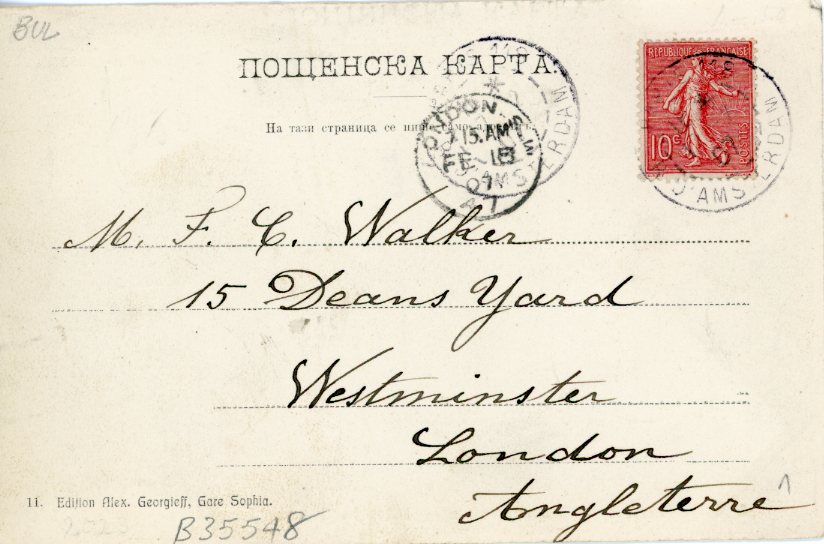 BUL
ПОЩЕНСКА КАРТА.
На тази страница се
REPUBLIQUE FRANÇAISE
10 c
POSTES
LONDON
.15.AM
FE 18
07
AMSTERDAM
D'AMSTERDAM
M. F. C. Walker
15 Deans Yard
Westminster
London
Angleterre
11. Edition Alex. Georgieff, Gare Sophia.
B35548